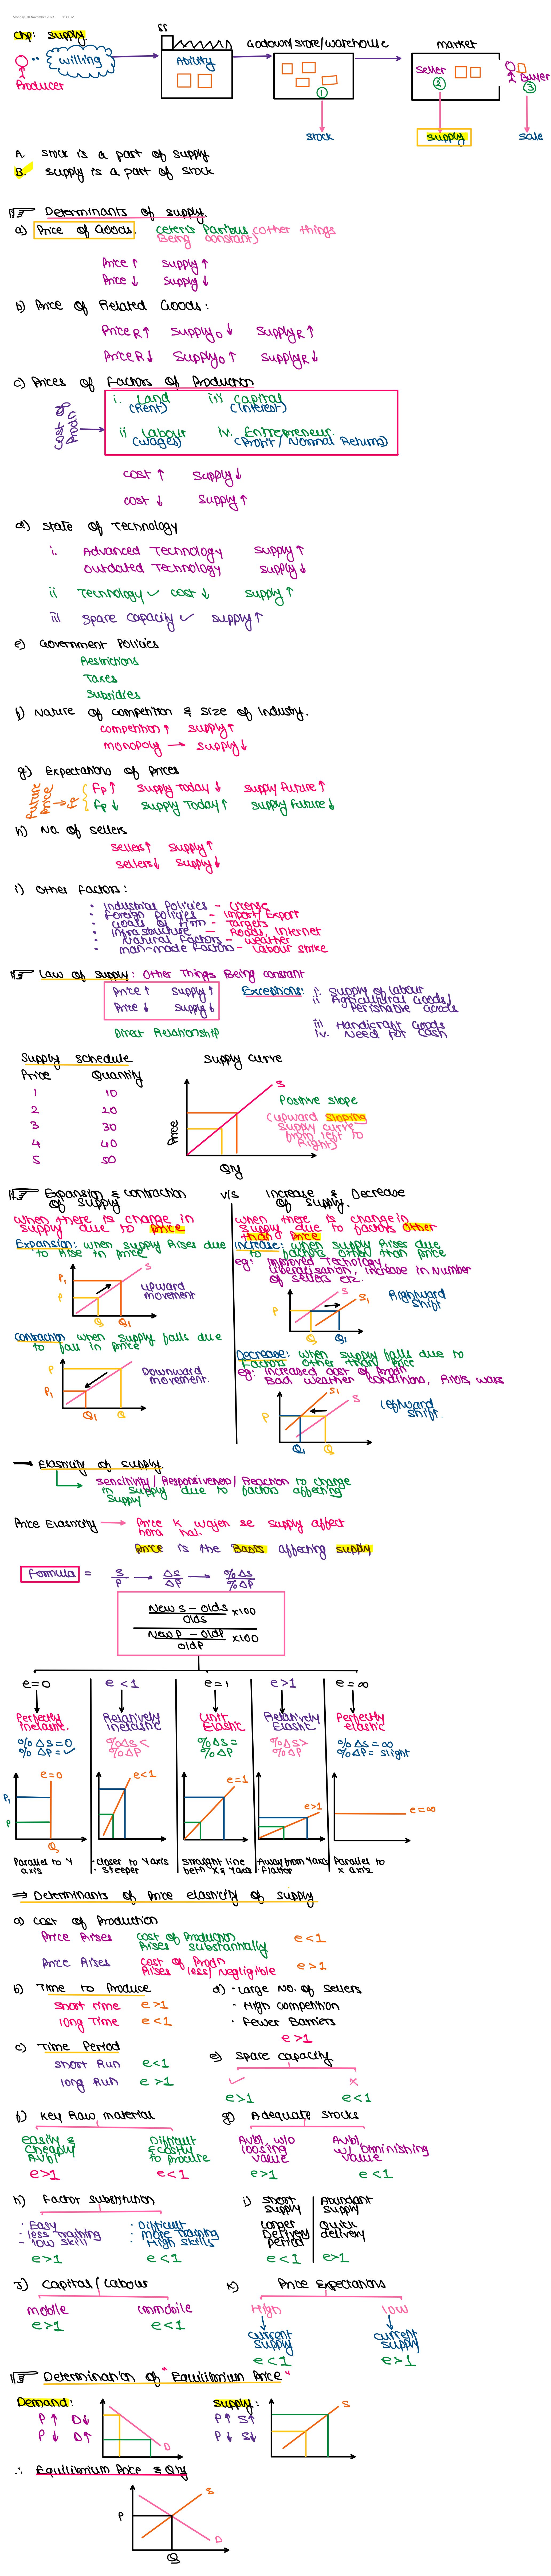 Monday, 20 November 2023 1:30 PM
Chp: Supply.
willing
Producer
SS
Ability
Godown/store/warehouse
①
Stock
market
Seller
②
Supply
Buyer
③
Sale
A. Stock is a part of supply.
B. Supply is a part of stock
Determinants of supply.
a) Price of Goods. Ceteris Paribus (other things
Being constant)
Price ↑ Supply ↑
Price ↓ Supply ↓
b) Price of Related Goods:
Price R ↑ Supply O ↓ Supply R ↑
Price R ↓ Supply O ↑ Supply R ↓
c) Prices of Factors of Production
Cost of Prodn
i. Land iii Capital
(Rent) (Interest)
ii Labour iv. Entrepreneur.
(wages) (Profit / Normal Returns)
Cost ↑ Supply ↓
Cost ↓ Supply ↑
d) State of Technology
i. Advanced Technology Supply ↑
Outdated Technology Supply ↓
ii Technology ✓ cost ↓ Supply ↑
iii Spare Capacity ✓ Supply ↑
e) Government Policies
Restrictions
Taxes
Subsidies
f) Nature of competition & Size of Industry.
Competition ↑ Supply ↑
monopoly → Supply ↓
g) Expectations of Prices
Future Price → Fp
Fp ↑ Supply Today ↓ Supply Future ↑
Fp ↓ Supply Today ↑ Supply Future ↓
h) No. of Sellers
Sellers ↑ Supply ↑
Sellers ↓ Supply ↓
i) Other Factors:
• Industrial Policies - License
• Foreign Policies - Import/Export
• Goals of Firm - Targets
• Infrastructure - Roads, Internet
• Natural Factors - weather
• man-made Factors - Labour strike
Law of supply: Other Things Being Constant
Price ↑ Supply ↑
Price ↓ Supply ↓
Direct Relationship
Exceptions: i. Supply of Labour
ii Agricultural Goods/
Perishable Goods
iii Handicraft Goods
iv. Need for Cash
Supply Schedule
Price Quantity
1 10
2 20
3 30
4 40
5 50
Supply Curve
Price
S
Qty
Positive slope
(upward sloping
Supply curve
from left to
Right)
Expansion & contraction
of supply
v/s
Increase & Decrease
of supply.
when there is change in
supply due to price
Expansion: when supply Rises due
to Rise in Price
P1
P
S
Q Q1
upward
movement
Contraction: when supply falls due
to fall in Price
P
P1
S
Q1 Q
Downward
movement.
when there is change in
supply due to factors other
than Price
Increase: when supply Rises due
to factors other than price
eg: improved Technology,
Liberalisation, Increase in Number
of sellers etc..
P
S
S1
Q Q1
Rightward
shift
Decrease: when supply falls due to
factors other than Price
eg: increased cost of Prodn
Bad weather conditions, Riots, wars
P
S1
S
Q1 Q
leftward
shift.
Elasticity of supply.
Sensitivity / Responsiveness / Reaction to change
in supply due to factors affecting
supply
Price Elasticity → Price k wajeh se supply affect
hora hai.
Price is the Basis affecting supply
Formula = S/P → ΔS/ΔP → %ΔS/%ΔP
New S - Old S / Old S ×100
New P - Old P / Old P ×100
e=0 e<1 e=1 e>1 e=∞
Perfectly
Inelastic.
%ΔS=0
%ΔP=✓
P1
P
e=0
Q
Parallel to Y
axis
Relatively
inelastic
%ΔS<
%ΔP
e<1
• Closer to Y axis
• Steeper
Unit
Elastic
%ΔS=
%ΔP
e=1
Straight line
betn X & Y axis
Relatively
Elastic
%ΔS>
%ΔP
e>1
• Away from Y axis
• Flatter
Perfectly
elastic
%ΔS=∞
%ΔP= slight
e=∞
Parallel to
X axis.
⇒ Determinants of Price elasticity of supply
a) Cost of Production
Price Rises Cost of Production
Rises substantially e<1
Price Rises Cost of Prodn
Rises less/Negligible e>1
b) Time to Produce
Short Time e>1
long Time e<1
c) Time Period
Short Run e<1
long Run e>1
d) • Large No. of Sellers
• High competition
• Fewer Barriers
e>1
e) Spare Capacity
✓ ×
e>1 e<1
f) Key Raw material
easily &
Cheaply
Avbl
e>1
Difficult
& costly
to procure
e<1
g) Adequate Stocks
Avbl w/o
loosing
value
e>1
Avbl,
w/ Diminishing
value
e<1
h) Factor Substitution
• Easy
• less Training
- low skill
e>1
• Difficult
• more Training
• High skills
e<1
i) Short
Supply
Longer
Delivery
Period
e<1
Abundant
Supply
Quick
delivery
e>1
J) Capital / Labour
mobile
e>1
Immobile
e<1
K) Price Expectations
High
current
supply
e<1
low
current
supply
e>1
Determination of "Equilibrium Price"
Demand:
P ↑ D ↓
P ↓ D ↑
D
Supply:
P ↑ S ↑
P ↓ S ↓
S
∴ Equilibrium Price & Qty
P
S
D
Q